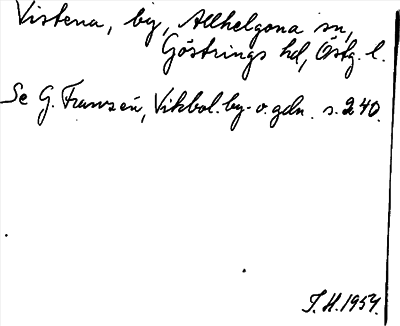 Vistena, by, Allhelgona sn,
Göstrings hd, Östg. l.
Se G. Franzén, Vikbol. by- o. gdn. s. 240.
T. H. 1954.